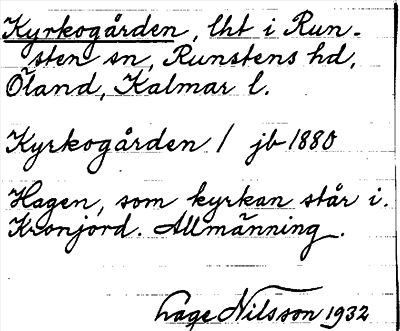 Kyrkogården, lht i Run-
sten sn, Runstens hd,
Öland, Kalmar l.
Kyrkogården / jb 1880
Hagen, som kyrkan står i.
Kronjord. Allmänning.
Lage Nilsson 1932